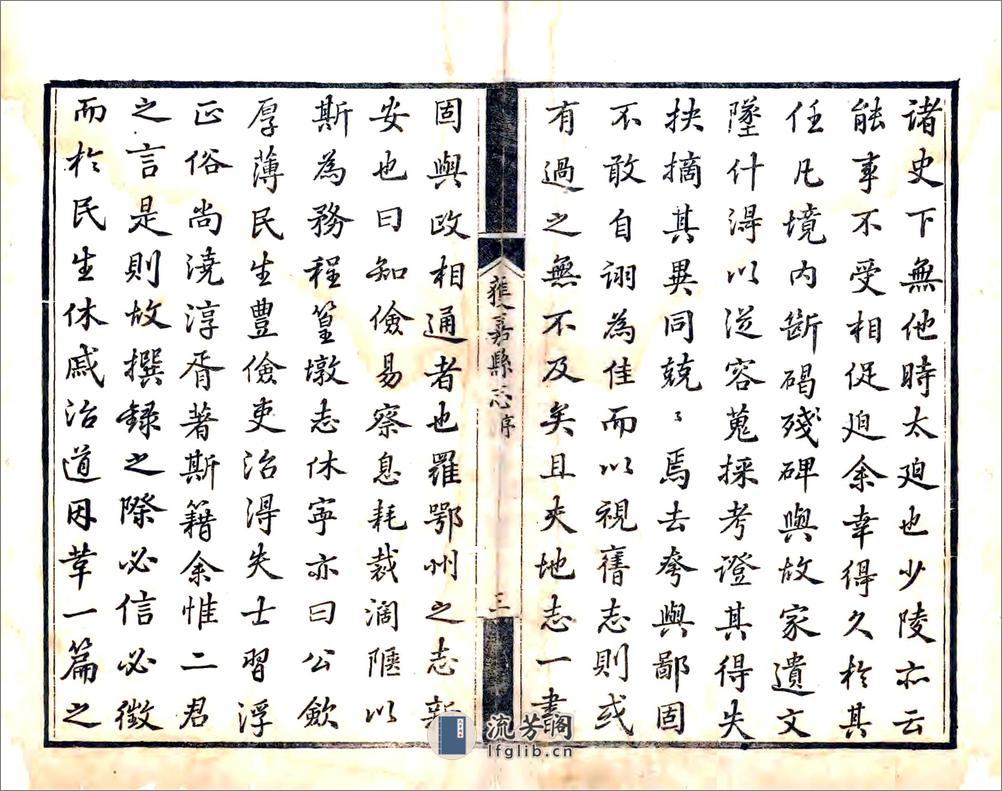 諸史下無他時太廹也少陵亦云
能事不受相促廹余幸得久於其
任凡境内斷碣殘碑與故家遺文
墜什得以從容蒐採考證其得失
抉摘其異同兢〻焉去夸與鄙固
不敢自詡為佳而以視舊志則或
有過之無不及矣且夫地志一書
獲嘉縣志 序 三
固與政相通者也羅鄂州之志新
安也曰知儉易察息耗裁濶隘以
斯為務程篁墩志休寧亦曰公歛
厚薄民生豊儉吏治得失士習浮
正俗尚澆淳胥著斯籍余惟二君
之言是則故撰録之際必信必徵
而於民生休戚治道因革一篇之
流芳阁
lfglib.cn